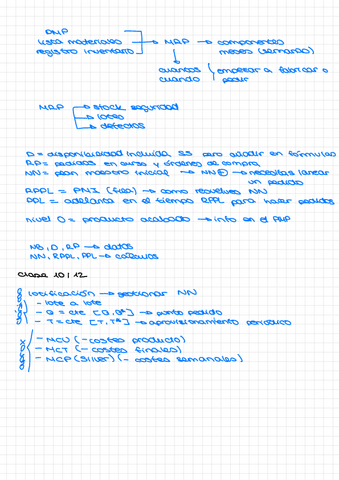 PMP
lista materiales → MRP → componentes
registro inventario meses (semanas)
cuantos empezar a fabricar o
cuando pedir
MRP → stock seguridad
→ lotes
→ defectos
D = disponibilidad incluida, SS pero añadir en fórmulas
RP = pedidos en curso y órdenes de compra
NN = plan maestro inicial → NN⊕ → necesitas lanzar
un pedido
RPPL = PM3 (fila) → como resuelves NN
PPL = adelanta en el tiempo RPPL para hacer pedidos
nivel 0 = producto acabado → info en el PMP
NB, D, RP → datos
NN, RPPL, PPL → cálculos
Clase 10/12
lotificación → gestionar NN
- lote a lote
- Q = cte [Q, Q*] → punto pedido
- T = cte [T, T*] → aprovisionamiento periodico
- MCU (- costes producto)
- MCT (- costes finales)
- MCP (Silver) (- costes semanales)